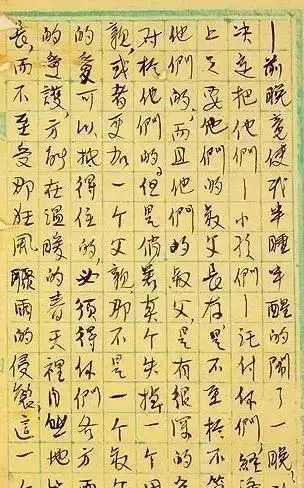 —前晚竟使我半睡半醒的鬧了一晚，
决定把他們—小孩們—託付你們，經
上只要他們的叔父長存，是不至於不
他們的，而且他們的叔父，是有很深的
对於他們的，但是倘若真个失掉一个
親，或者更加一个父親，那不是一个叔
的愛可以抵得住的，必須得你們各方
的愛護，方能在溫暖的春天裡自然地
長，而不至受那狂風驟雨的侵蝕，這一个